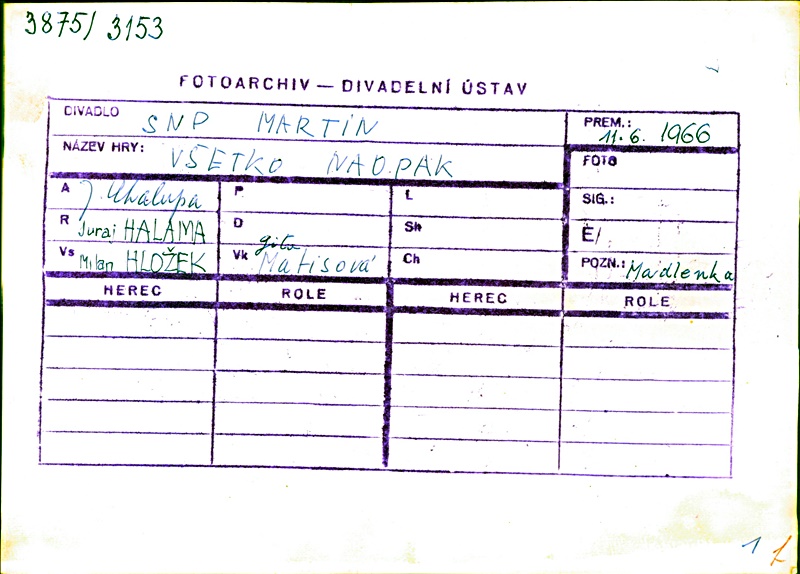 3875/3153
FOTOARCHIV — DIVADELNÍ ÚSTAV
DIVADLO SNP MARTIN PREM.: 11.6. 1966
NÁZEV HRY: VŠETKO NAOPAK FOTO
A J. Chalupa P L SIG.:
R Juraj HALAMA D Sh Ë/
Vs Milan HLOŽEK Vk gita Matisová Ch POZN.: Madlenka
HEREC ROLE HEREC ROLE
1